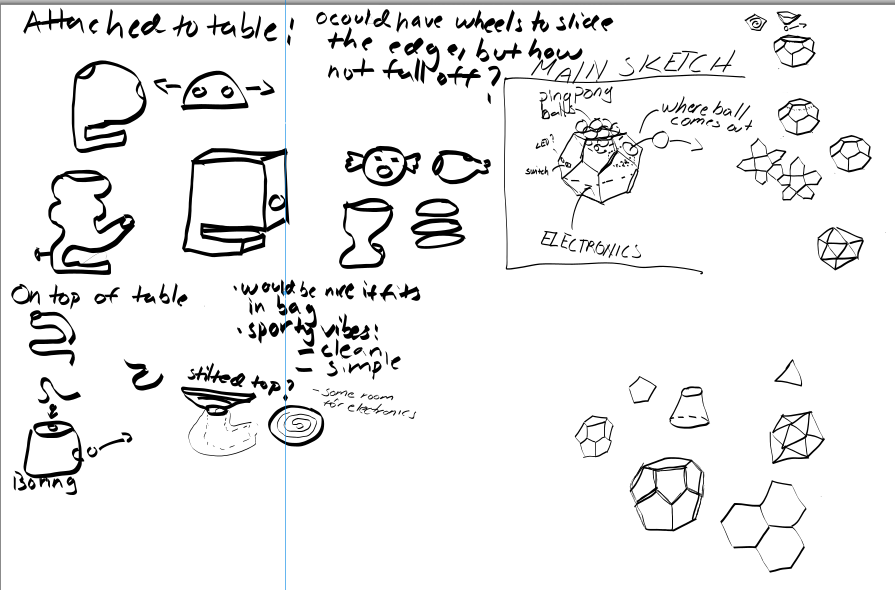 Attached to table:
○ could have wheels to slide
the edge, but how
not fall off?
MAIN SKETCH
pingpong
balls
where ball
comes out
LED?
switch
ELECTRONICS
On top of table
• would be nice if fits
in bag
• sporty vibes:
– clean
– simple
stilted top?
– some room
for electronics
Boring